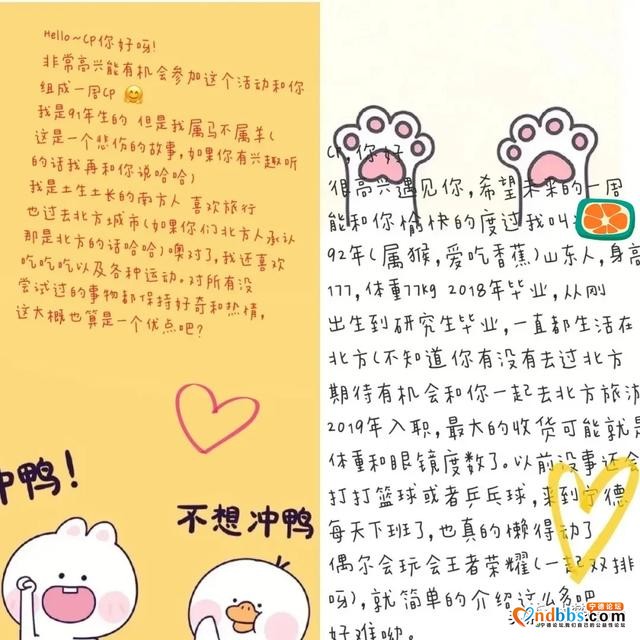 Hello~CP你好呀!
非常高兴能有机会参加这个活动和你
组成一周CP
我是91年生的 但是我属马不属羊(
这是一个悲伤的故事,如果你有兴趣听
的话我再和你说哈哈)
我是土生土长的南方人 喜欢旅行
也过去北方城市(如果你们北方人承认
那是北方的话哈哈)噢对了,我还喜欢
吃吃吃以及各种运动。对所有没
尝试过的事物都保持好奇和热情,
这大概也算是一个优点吧?
冲鸭!
不想冲鸭
CP,你好
很高兴遇见你,希望未来的一周
能和你愉快的度过我叫
92年(属猴,爱吃香蕉)山东人,身高
177,体重77kg 2018年毕业,从刚
出生到研究生毕业,一直都生活在
北方(不知道你有没有去过北方
期待有机会和你一起去北方旅游
2019年入职,最大的收货可能就是
体重和眼镜度数了。以前没事还会
打打篮球或者乒乓球,来到宁德
每天下班了,也真的懒得动了
偶尔会玩会王者荣耀(一起双排
呀),就简单的介绍这么多吧
好难呦。
宁德论坛
ndbbs.com